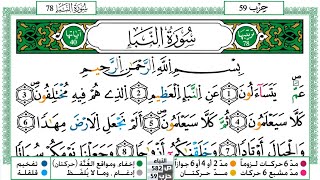 سُورَةُ النَّبَإِ 78
حِزْب 59
سُورَةُ النَّبَإِ
آيَاتُهَا 40
78
بِسْمِ اللَّهِ الرَّحْمَٰنِ الرَّحِيمِ
عَمَّ يَتَسَاءَلُونَ 1 عَنِ النَّبَإِ الْعَظِيمِ 2 الَّذِي هُمْ فِيهِ مُخْتَلِفُونَ 3
كَلَّا سَيَعْلَمُونَ 4 ثُمَّ كَلَّا سَيَعْلَمُونَ 5 أَلَمْ نَجْعَلِ الْأَرْضَ مِهَٰدًا 6
وَالْجِبَالَ أَوْتَادًا 7 وَخَلَقْنَاكُمْ أَزْوَاجًا 8 وَجَعَلْنَا نَوْمَكُمْ سُبَاتًا
مدّ 6 حركات لزوماً مدّ 2 أو 4 أو 6 جوازاً إخفاء، ومواقع الغنّة (حركتان) تفخيم
مدّ مشبع 6 حركات مدّ حركتان إدغام، وما لا يلفظ قلقلة
النبأ
582